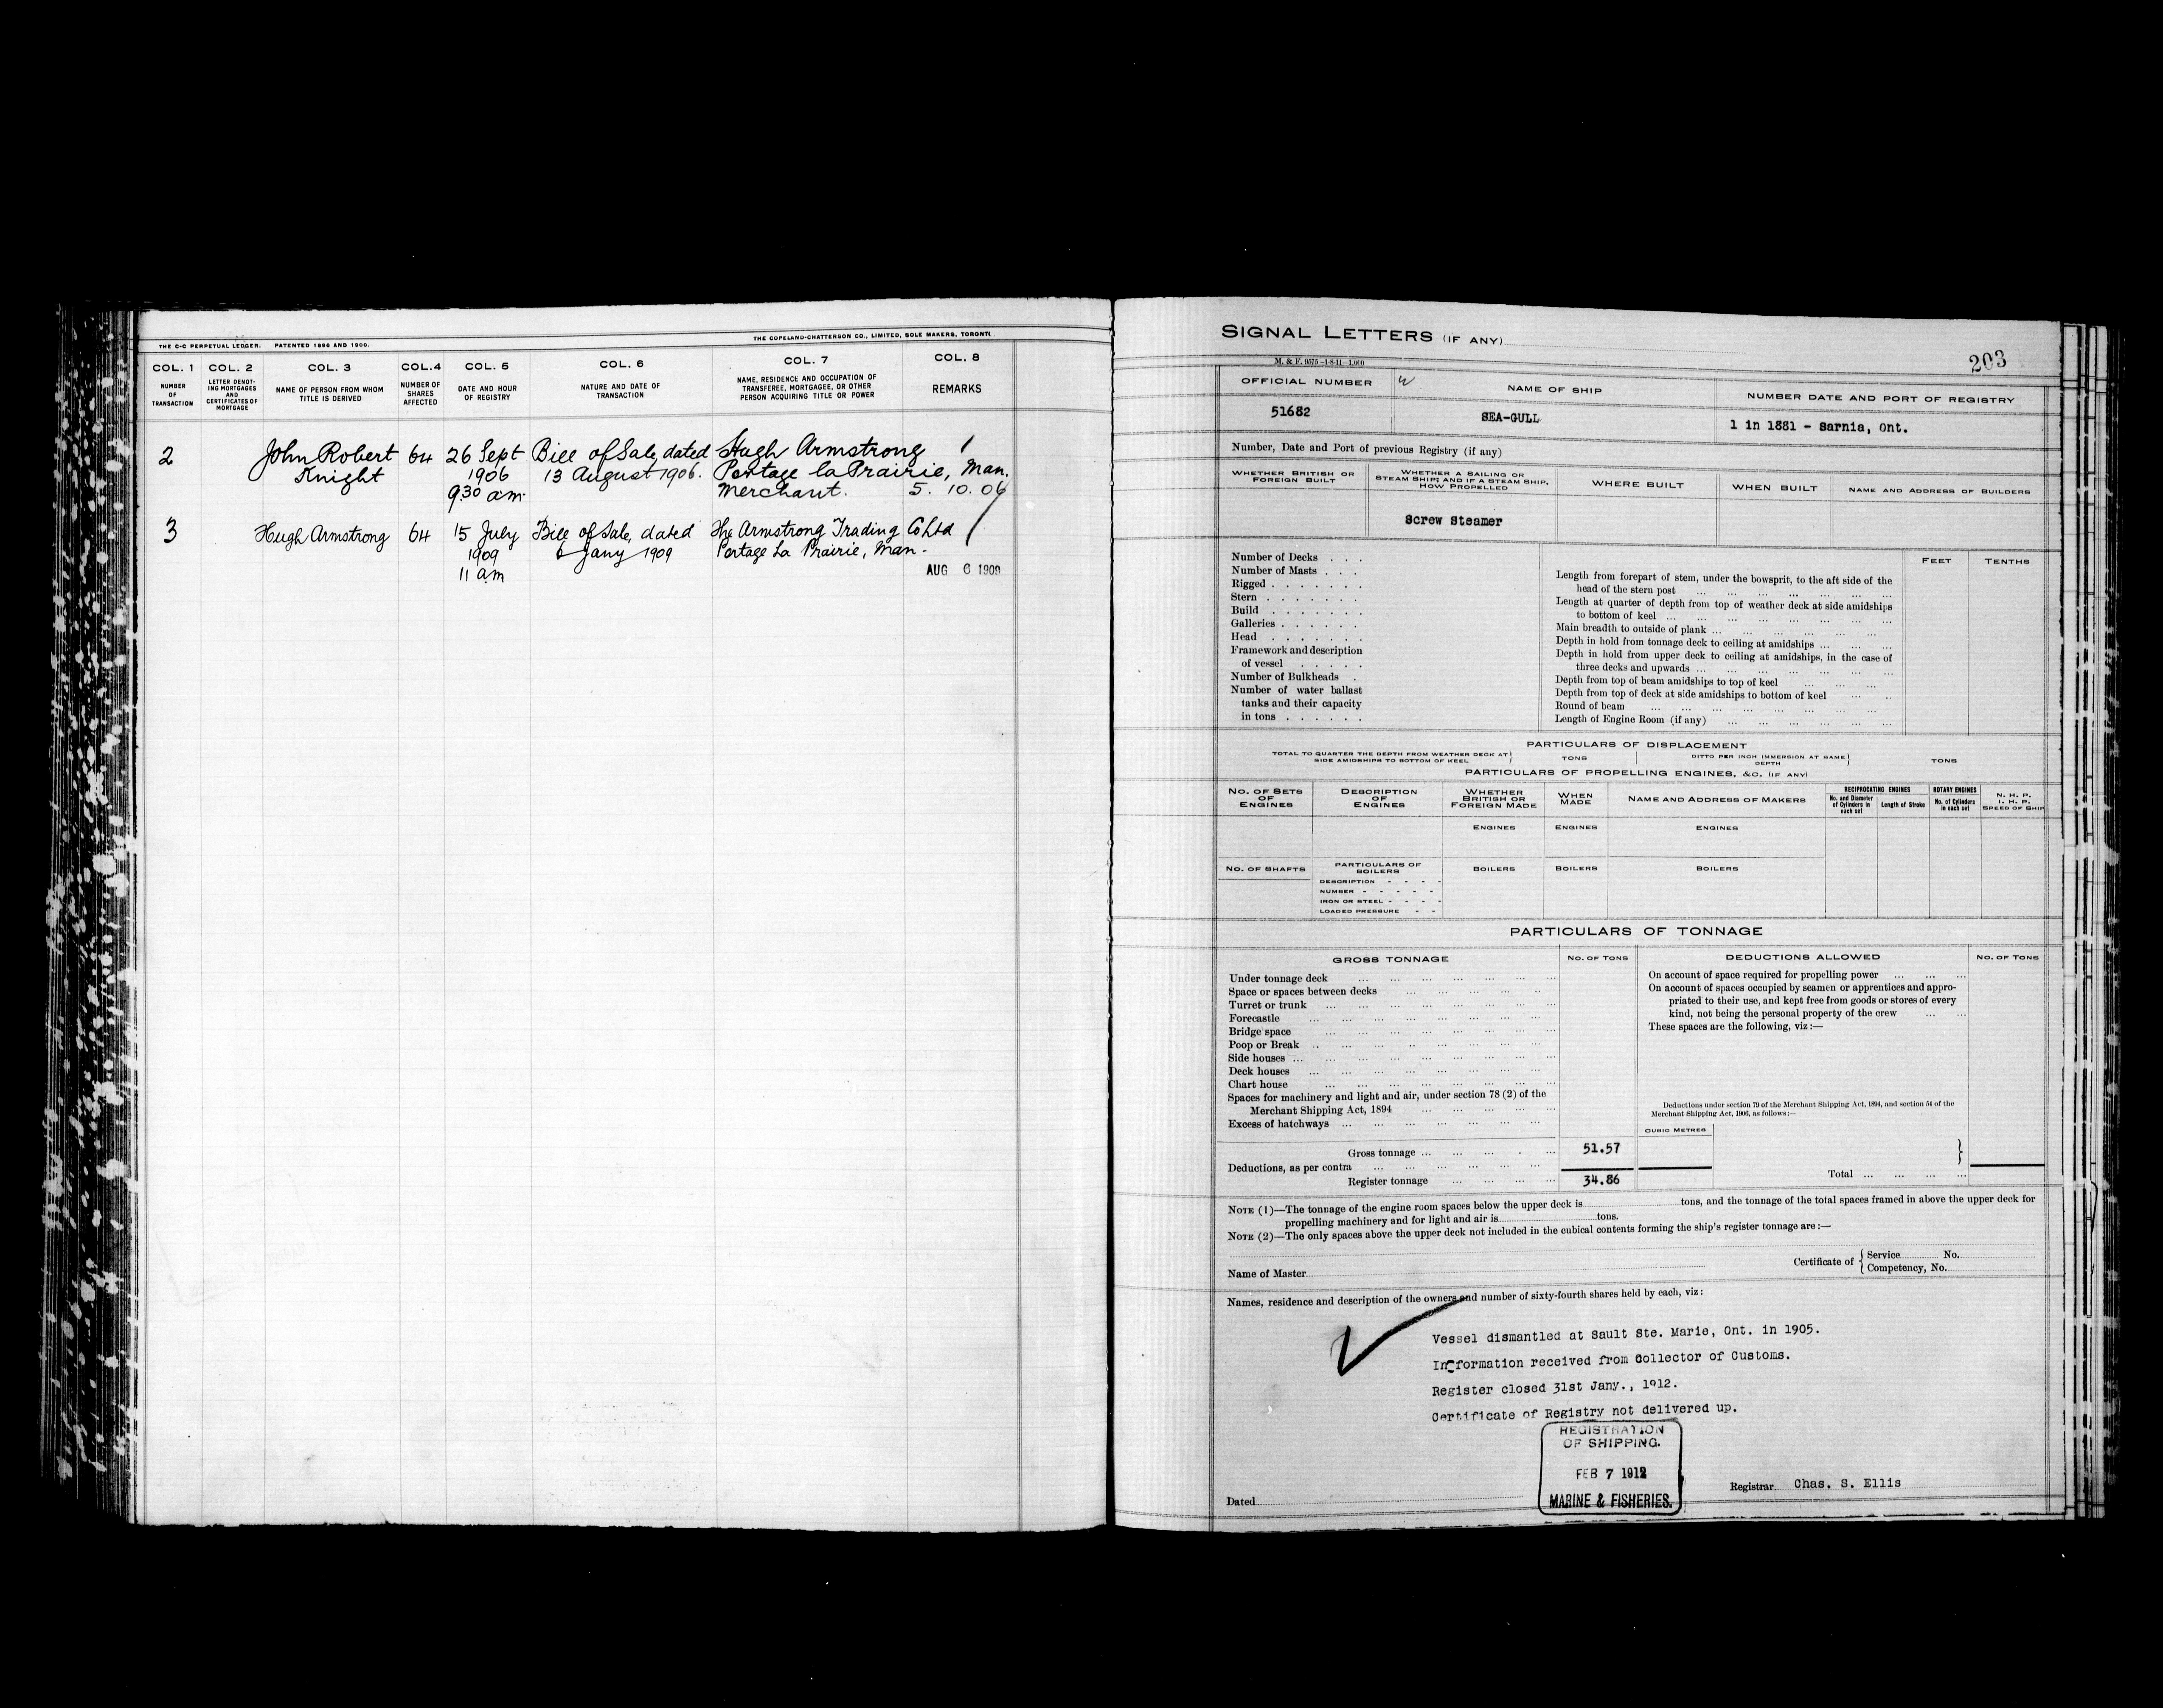 THE C-C PERPETUAL LEDGER. PATENTED 1896 AND 1900. THE COPELAND-CHATTERSON CO., LIMITED, SOLE MAKERS, TORONTO
COL. 1 COL. 2 COL. 3 COL.4 COL. 5 COL. 6 COL. 7 COL. 8
NUMBER OF TRANSACTION
LETTER DENOT-ING MORTGAGES AND CERTIFICATES OF MORTGAGE
NAME OF PERSON FROM WHOM TITLE IS DERIVED
NUMBER OF SHARES AFFECTED
DATE AND HOUR OF REGISTRY
NATURE AND DATE OF TRANSACTION
NAME, RESIDENCE AND OCCUPATION OF TRANSFEREE, MORTGAGEE, OR OTHER PERSON ACQUIRING TITLE OR POWER
REMARKS
2 John Robert 64 26 Sept Bill of Sale, dated Hugh Armstrong
Knight 1906 13 August 1906. Portage la Prairie, Man.
9.30 a.m. Merchant. 5. 10. 06
3 Hugh Armstrong 64 15 July Bill of Sale, dated The Armstrong Trading Co Ltd
1909 6 Jany 1909 Portage La Prairie, Man.
11 am AUG 6 1909
SIGNAL LETTERS (IF ANY)
M. & F. 9575-1-8-11-1,000
203
OFFICIAL NUMBER NAME OF SHIP NUMBER DATE AND PORT OF REGISTRY
51682 SEA-GULL 1 in 1881 - Sarnia, Ont.
Number, Date and Port of previous Registry (if any)
WHETHER BRITISH OR FOREIGN BUILT
WHETHER A SAILING OR STEAM SHIP; AND IF A STEAM SHIP, HOW PROPELLED
WHERE BUILT WHEN BUILT NAME AND ADDRESS OF BUILDERS
Screw Steamer
Number of Decks
Number of Masts
Rigged
Stern
Build
Galleries
Head
Framework and description
of vessel
Number of Bulkheads
Number of water ballast
tanks and their capacity
in tons
FEET TENTHS
Length from forepart of stem, under the bowsprit, to the aft side of the
head of the stern post
Length at quarter of depth from top of weather deck at side amidships
to bottom of keel
Main breadth to outside of plank
Depth in hold from tonnage deck to ceiling at amidships
Depth in hold from upper deck to ceiling at amidships, in the case of
three decks and upwards
Depth from top of beam amidships to top of keel
Depth from top of deck at side amidships to bottom of keel
Round of beam
Length of Engine Room (if any)
PARTICULARS OF DISPLACEMENT
TOTAL TO QUARTER THE DEPTH FROM WEATHER DECK AT SIDE AMIDSHIPS TO BOTTOM OF KEEL } TONS DITTO PER INCH IMMERSION AT SAME DEPTH } TONS
PARTICULARS OF PROPELLING ENGINES, &C. (IF ANY)
NO. OF SETS OF ENGINES
DESCRIPTION OF ENGINES
WHETHER BRITISH OR FOREIGN MADE
WHEN MADE
NAME AND ADDRESS OF MAKERS
RECIPROCATING ENGINES
No. and Diameter of Cylinders in each set
Length of Stroke
ROTARY ENGINES
No. of Cylinders in each set
N. H. P.
I. H. P.
SPEED OF SHIP
ENGINES ENGINES ENGINES
NO. OF SHAFTS PARTICULARS OF BOILERS BOILERS BOILERS BOILERS
DESCRIPTION
NUMBER
IRON OR STEEL
LOADED PRESSURE
PARTICULARS OF TONNAGE
GROSS TONNAGE NO. OF TONS DEDUCTIONS ALLOWED NO. OF TONS
Under tonnage deck
Space or spaces between decks
Turret or trunk
Forecastle
Bridge space
Poop or Break
Side houses
Deck houses
Chart house
Spaces for machinery and light and air, under section 78 (2) of the
Merchant Shipping Act, 1894
Excess of hatchways
Gross tonnage 51.57
Deductions, as per contra
Register tonnage 34.86
On account of space required for propelling power
On account of spaces occupied by seamen or apprentices and appro-
priated to their use, and kept free from goods or stores of every
kind, not being the personal property of the crew
These spaces are the following, viz:—
Deductions under section 79 of the Merchant Shipping Act, 1894, and section 54 of the
Merchant Shipping Act, 1906, as follows:—
CUBIC METRES
Total
NOTE (1)—The tonnage of the engine room spaces below the upper deck is tons, and the tonnage of the total spaces framed in above the upper deck for
propelling machinery and for light and air is tons.
NOTE (2)—The only spaces above the upper deck not included in the cubical contents forming the ship's register tonnage are:—
Name of Master Certificate of { Service No.
Competency, No.
Names, residence and description of the owners and number of sixty-fourth shares held by each, viz:
Vessel dismantled at Sault Ste. Marie, Ont. in 1905.
Information received from Collector of Customs.
Register closed 31st Jany., 1912.
Certificate of Registry not delivered up.
REGISTRATION
OF SHIPPING.
FEB 7 1912
MARINE & FISHERIES.
Dated Registrar Chas. S. Ellis